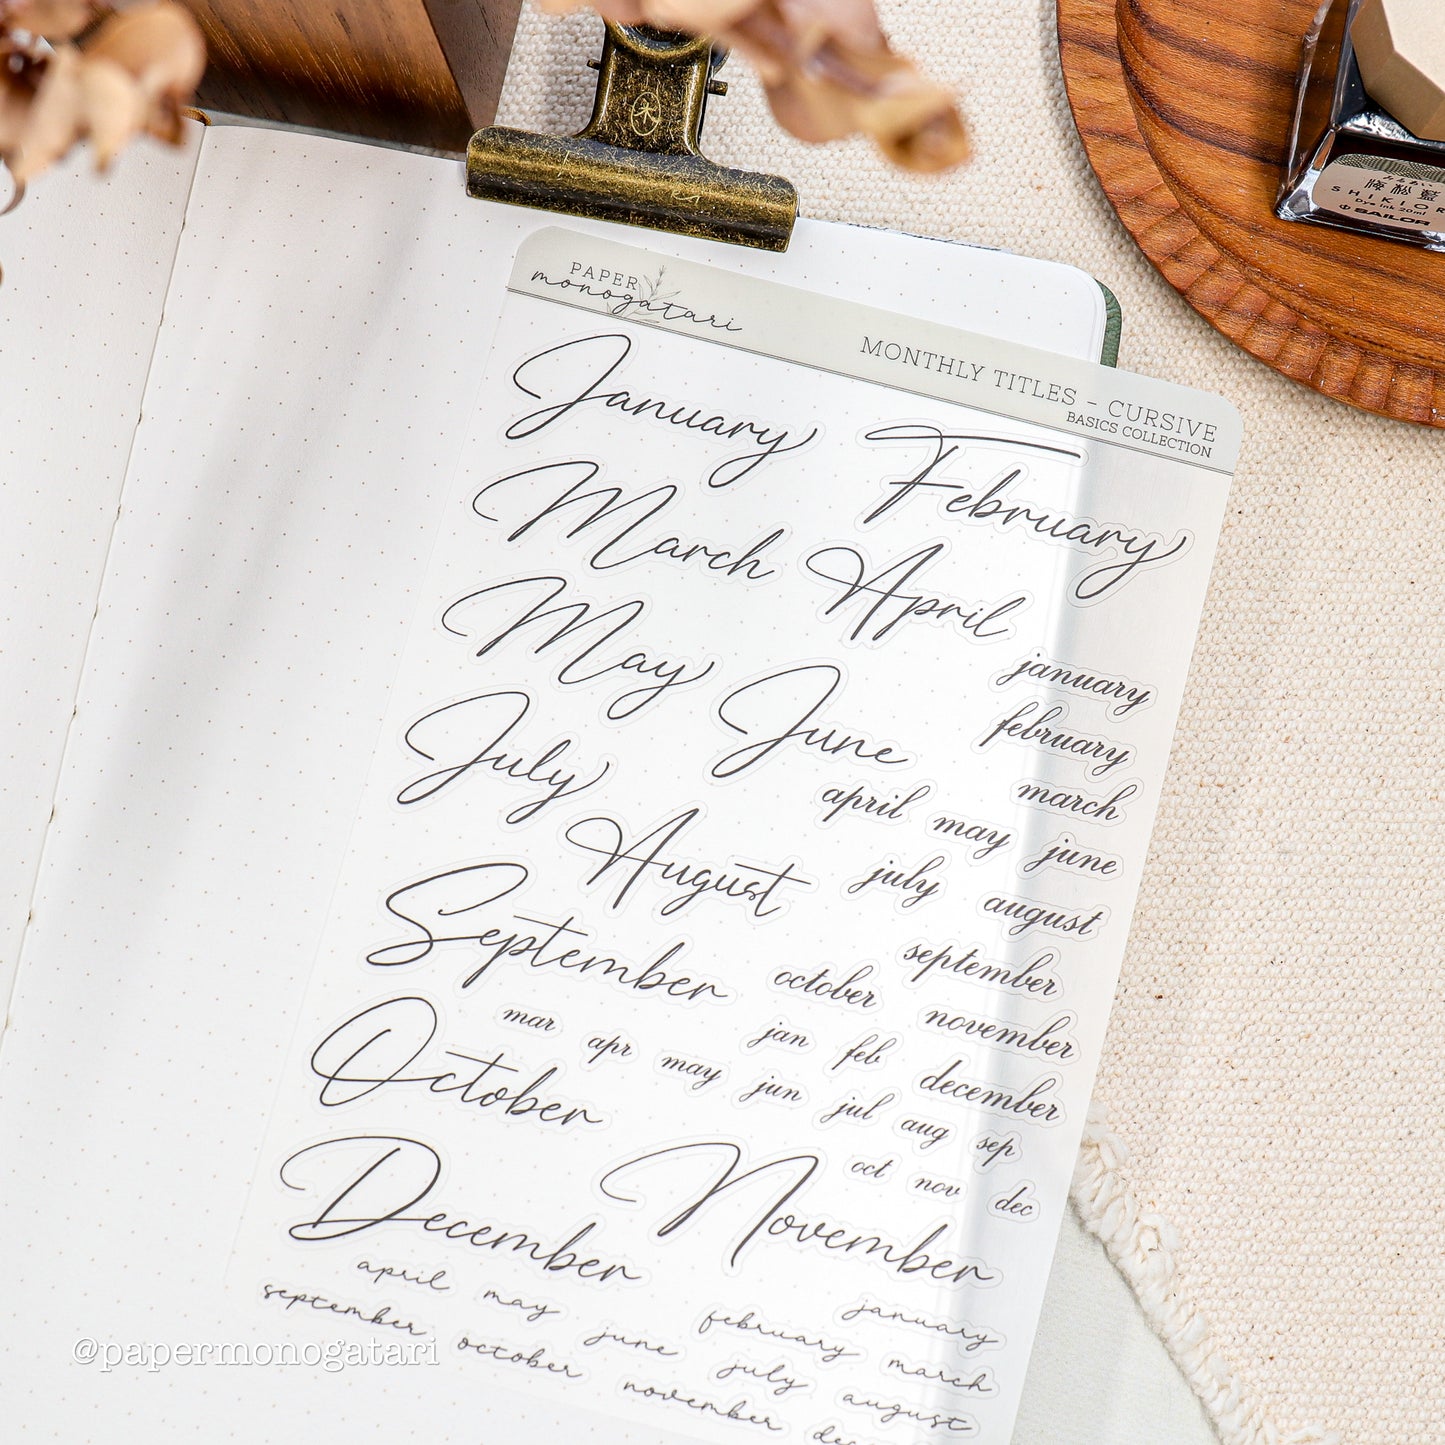 PAPER
monogatari
MONTHLY TITLES - CURSIVE
BASICS COLLECTION
January
February
March
April
May
June
July
August
September
October
December
November
january
february
march
april may june
july august
september
october november
december
jan feb
mar apr may jun jul aug sep
oct nov dec
january
february march
april may june july august
september october november
木
SHIKIOR
Dye ink 20ml
SAILOR
@papermonogatari